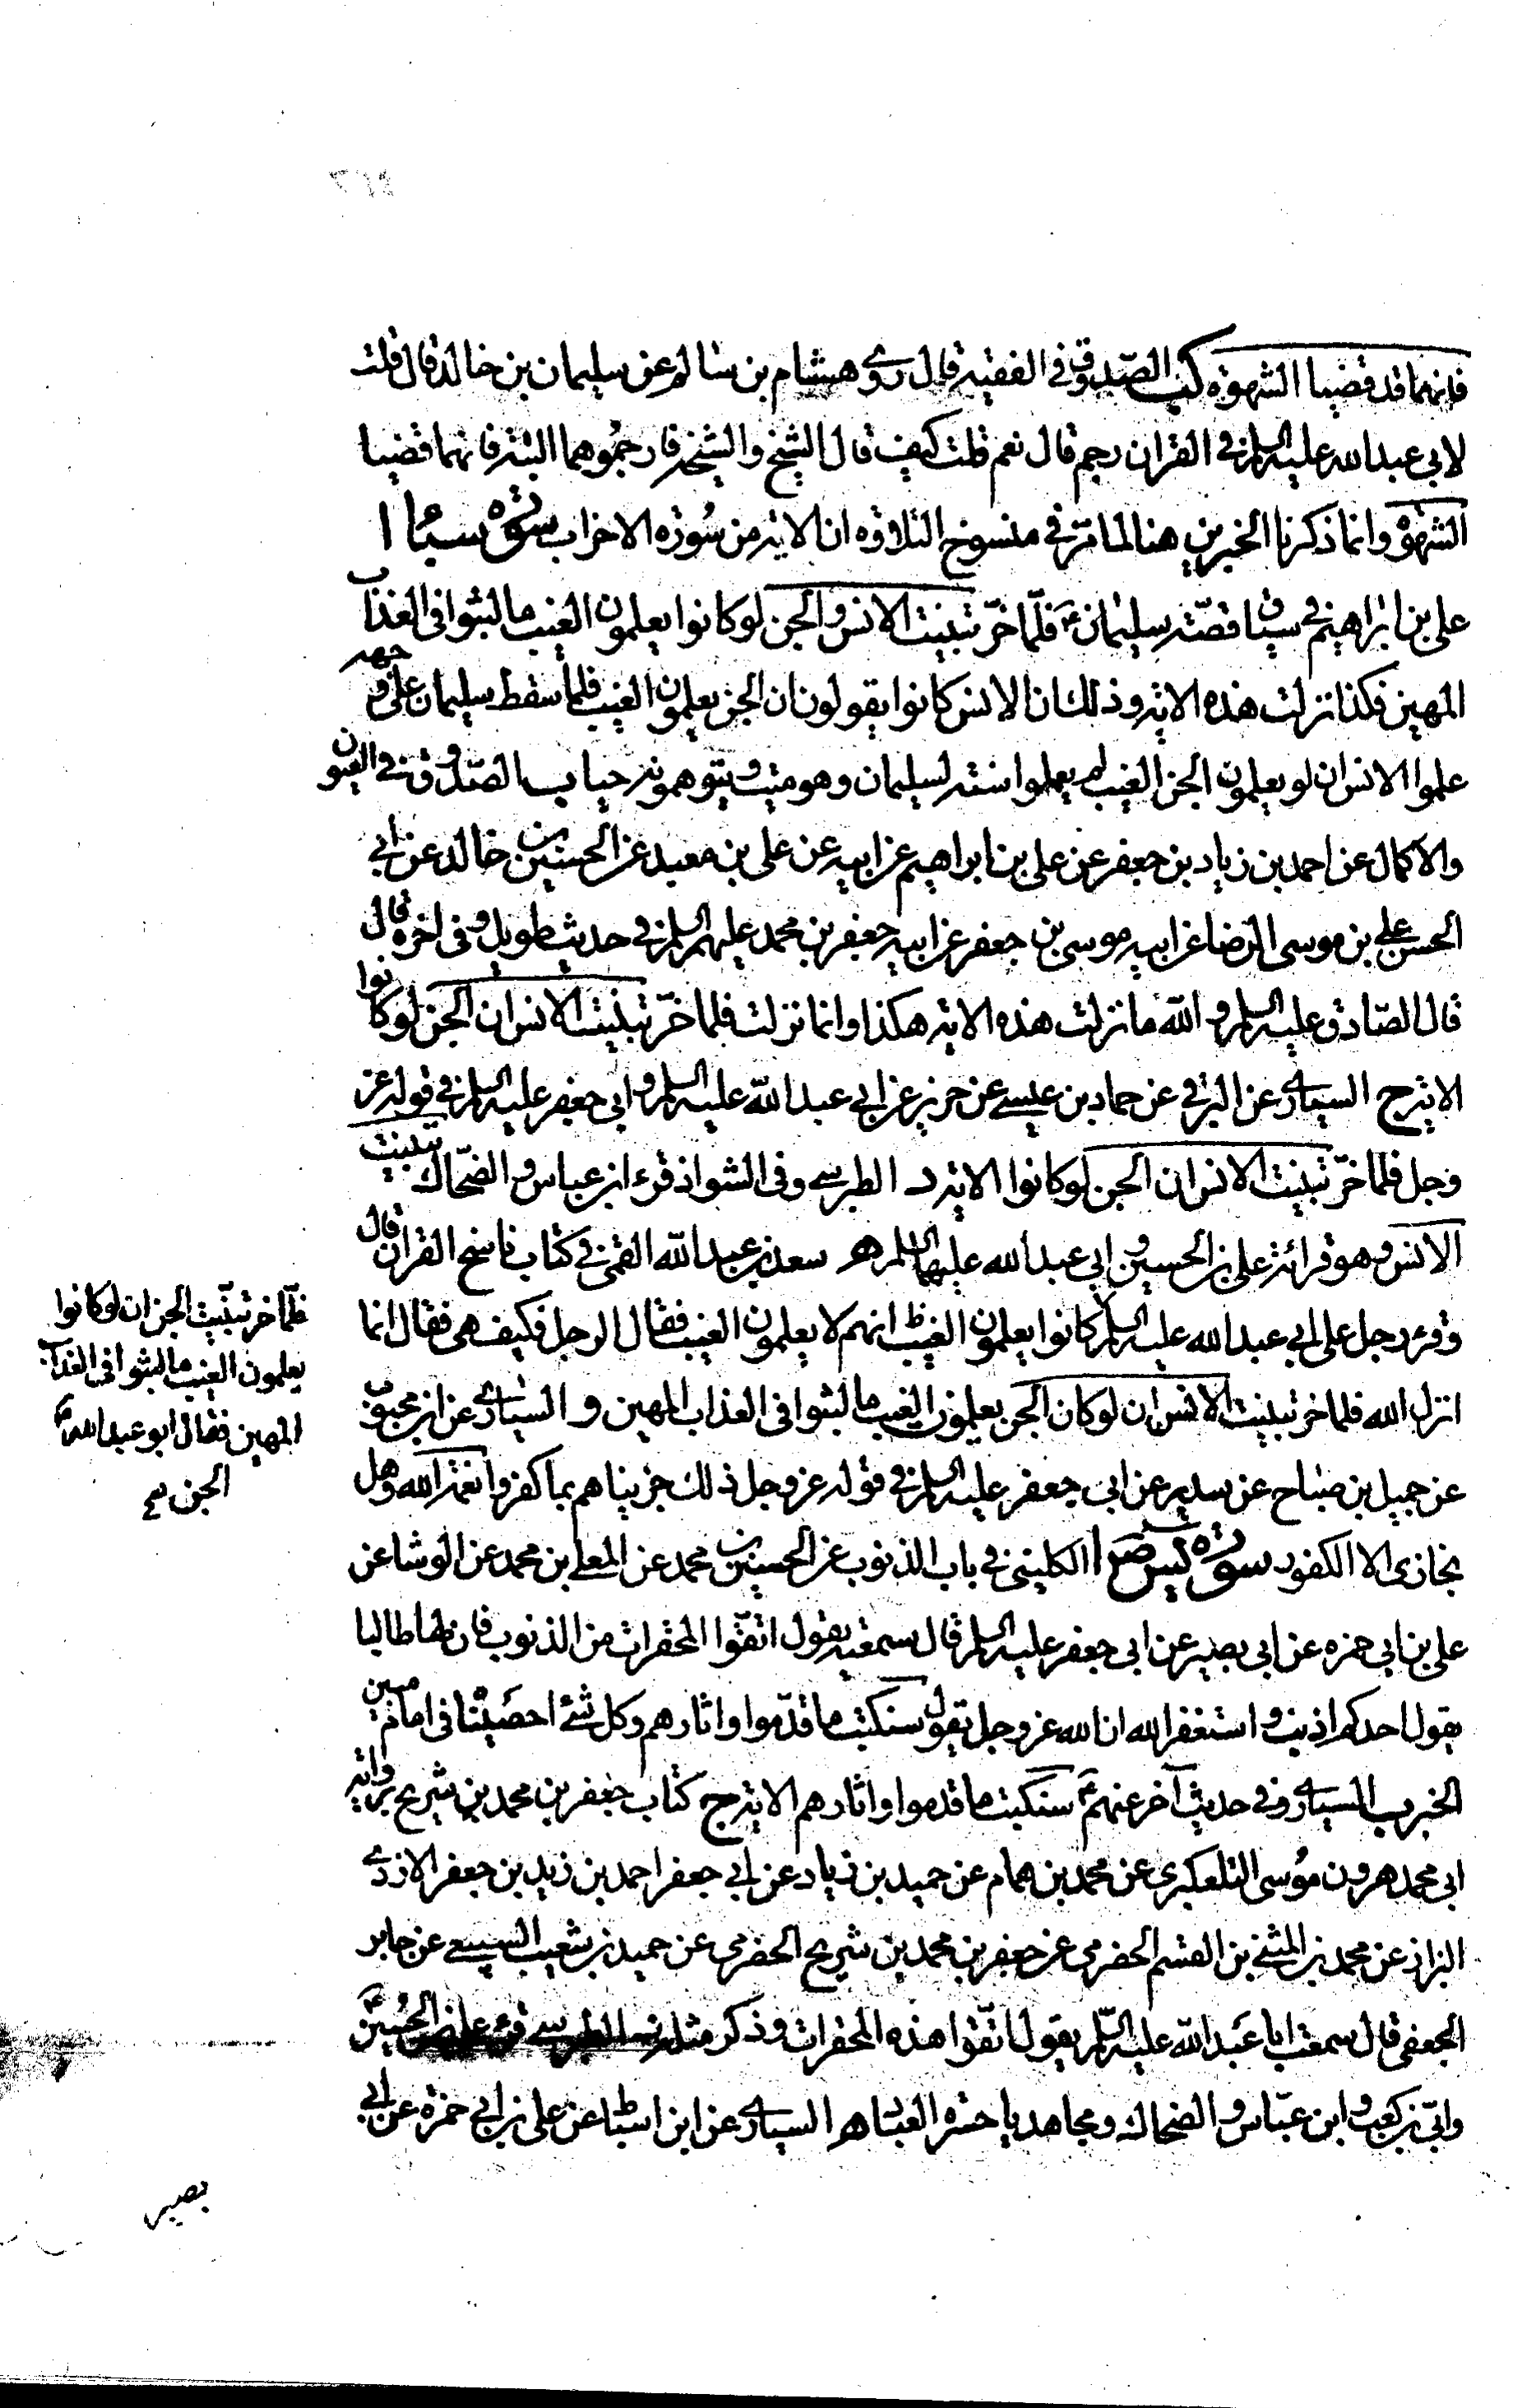 فانهما قد قضيا الشهوة كب الصّدوق في الفقيه قال روى هشام بن سالم عن سليمان بن خالد قال قلت
لابي عبد الله عليه السلم في القران رجم قال نعم قلت كيف قال الشيخ والشيخة فارجموهما البتة فانهما قضيا
الشهوة وانما ذكرنا الخبرين هنا لما مر في منسوخ التلاوة ان الاية من سورة الاحزاب سورة سبأ ا
على بن ابراهيم في سياق قصّة سليمان ع فلمّا خرّ تبينت الانس ان الجن لو كانوا يعلمون الغيب ما لبثوا في العذاب
المهين فكذا نزلت هذه الاية وذلك ان الانس كانوا يقولون ان الجن يعلمون الغيب فلما سقط سليمان على وجهه
علموا الانس ان لو يعلمون الجن الغيب لم يعملوا سنة لسليمان وهو ميت ويتوهمونه حيا ب الصّدوق في العيون
والاكمال عن احمد بن زياد بن جعفر عن على بن ابراهيم عن ابيه عن على بن معبد عن الحسين بن خالد عن ابي
الحسن علي بن موسى الرضا عن ابيه موسى بن جعفر عن ابيه جعفر بن محمد عليهم السلم في حديث طويل وفي اخره قال
قال الصّادق عليه السلم والله ما نزلت هذه الاية هكذا وانما نزلت فلما خرّ تبينت الانس ان الجن لو كانوا
الاية ج السياري عن البرقي عن حماد بن عيسى عن حريز عن ابي عبد الله عليه السلم وابي جعفر عليه السلم في قوله عز
وجل فلما خرّ تبينت الانس ان الجن لو كانوا الاية د الطبرسي وفي الشواذ قرء ابن عباس والضحّاك تبينت
الانس وهو قرائة على بن الحسين وابي عبد الله عليهما السلم ه سعد بن عبد الله القمي في كتاب ناسخ القران قال
وقرء رجل على ابي عبد الله عليه السلم كانوا يعلمون الغيب انهم لا يعلمون الغيب فقال الرجل فكيف هي فقال انما
فلمّا خر تبيّنت الجن ان لو كانوا
يعلمون الغيب ما لبثوا في العذاب
المهين فقال ابو عبد الله ع
الجن صح
انزل الله فلما خر تبينت الانس ان لو كان الجن يعلمون الغيب ما لبثوا في العذاب المهين و السياري عن ابن محبوب
عن جميل بن صباح عن سدير عن ابي جعفر عليه السلم في قوله عز وجل ذلك جزيناهم بما كفروا نعمة الله وهل
يجازى الا الكفور سورة يس ا الكليني في باب الذنوب عن الحسين بن محمد عن المعلى بن محمد عن الوشا عن
على بن ابي حمزه عن ابي بصير عن ابي جعفر عليه السلم قال سمعته يقول اتقوا المحقرات من الذنوب فان لها طالبا
يقول احدكم اذنب و استغفر الله ان الله عز وجل يقول سنكتب ما قدّموا واثارهم وكل شئ احصيناه في امام مبين
الخبر ب السياري وفي حديث آخر عنهم ع سنكتب ما قدموا واثارهم الاية ج كتاب جعفر بن محمد بن شريح برواية
ابي محمد هرون موسى التلعكبري عن محمد بن همام عن حميد بن زياد عن ابي جعفر احمد بن زيد بن جعفر الازدي
البزاز عن محمد بن المثنى بن القسم الحضرمي عن جعفر بن محمد بن شريح الحضرمي عن حميد بن شعيب السبيعي عن جابر
الجعفي قال سمعت ابا عبد الله عليه السلم يقول اتّقوا هذه المحقرات وذكر مثله د الطبرسي قرء على بن الحسين ع
وابيّ بن كعب و ابن عبّاس والضحاك ومجاهد يا حسرة العباد ه السياري عن ابن اسباط عن على بن ابي حمزة عن ابي
بصير